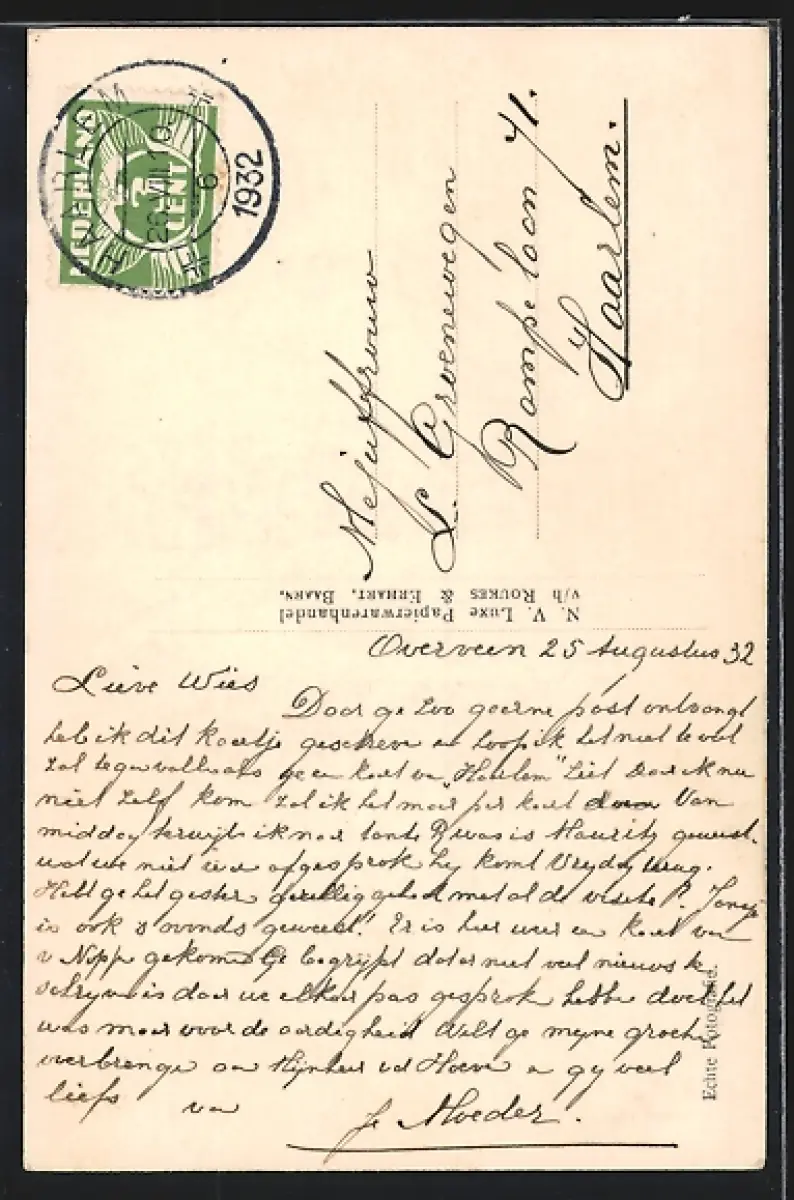 HAARLEM
26.VIII.10
6
1932
NEDERLAND
CENT
Mejuffrouw
L. Groenewegen
Rampelaan 41.
Haarlem.
N. V. Luxe Papierwarenhandel
v/h Roukes & Erhart, Baarn.
Overveen 25 Augustus 32
Lieve Wies
Daar ge zoo gaarne post ontvangt
heb ik dit kaartje geschreven en hoop ik het niet te veel
zal tegenvallen geen kaart van "Haarlem" ziet Daar ik nu
niet zelf kom zal ik het maar per kaart doen Van
middag terwijl ik naar tante R was is Maurits geweest.
wat we niet afgesproken hij komt Vrijdag terug.
Hebt ge het gister gezellig gehad met al de visite? Jansje
is ook s avonds geweest! Er is hier weer een kaart van
v Nopp gekomen Ge begrijpt dat er niet veel nieuws te
schrijven is daar we elkaar pas gesproken hebben doch het
was maar voor de aardigheid Wilt ge mijne groeten
overbrengen aan Mijnheer vd Hoeve en gij veel
liefs van
je Moeder.
Echte Fotografie.